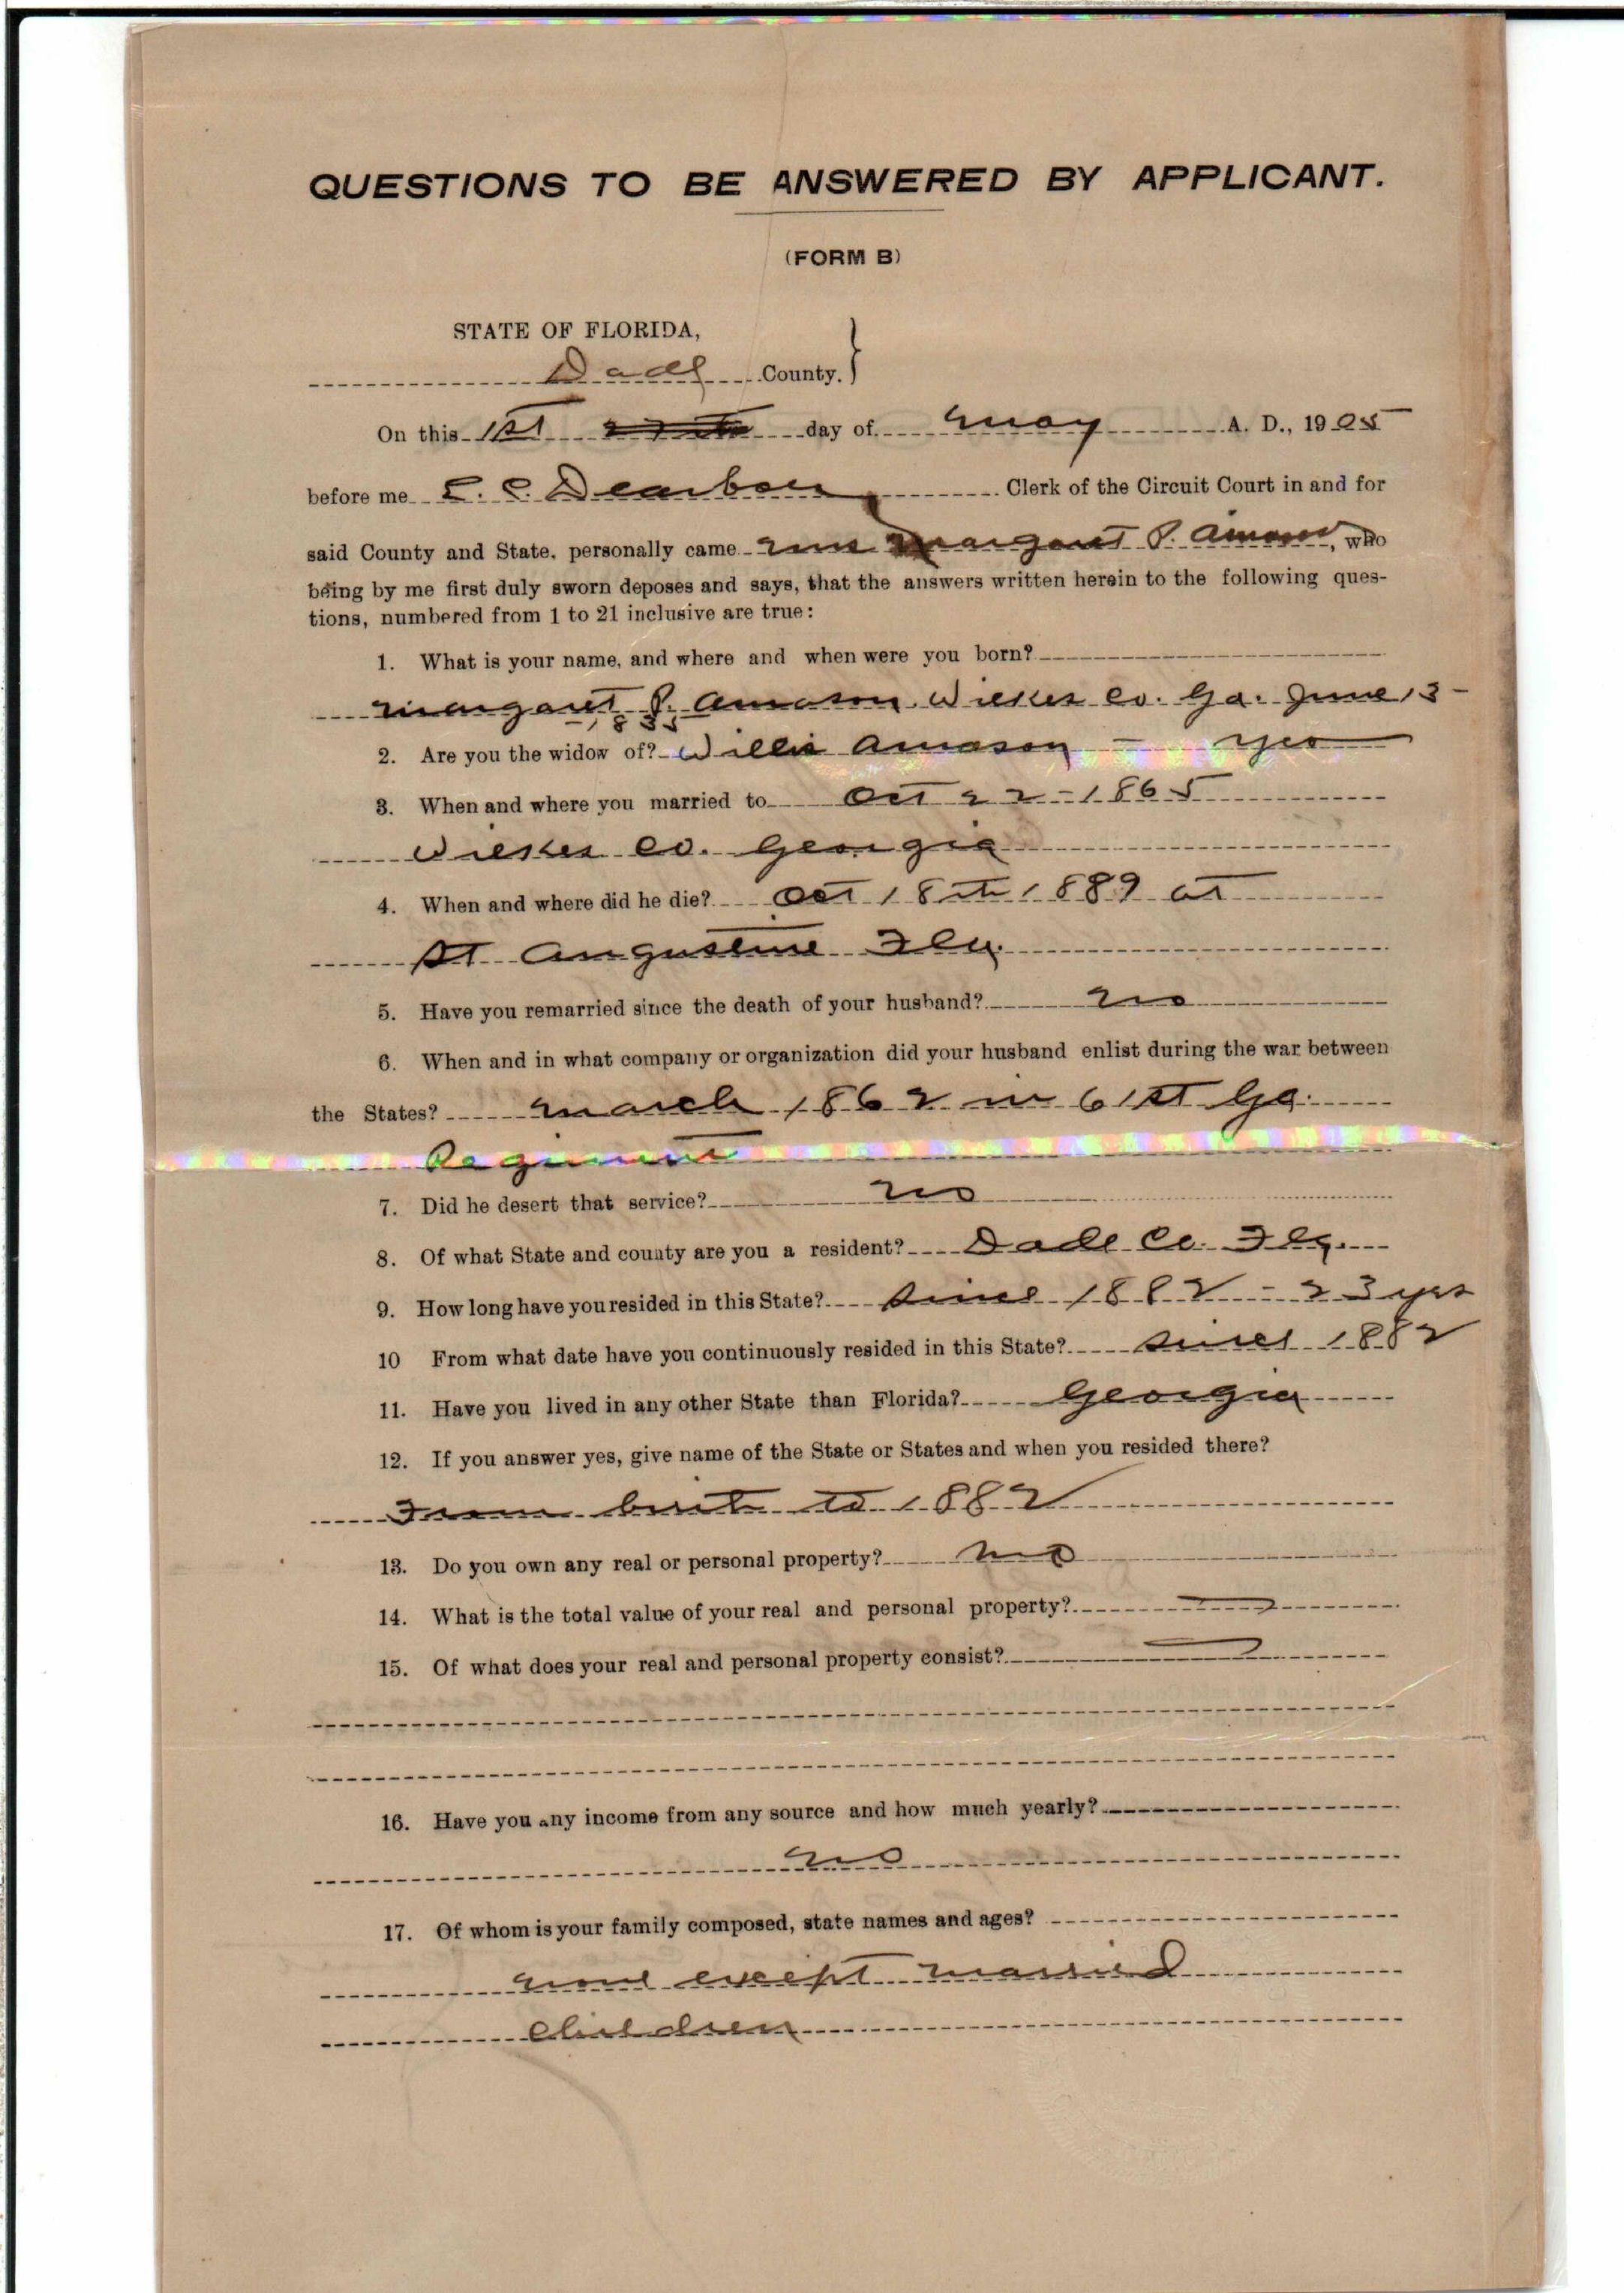 QUESTIONS TO BE ANSWERED BY APPLICANT.
(FORM B)
STATE OF FLORIDA,
Dade County. }
On this 1st day of May A. D., 1905
before me E. C. Dearborn Clerk of the Circuit Court in and for
said County and State, personally came Mrs Margaret P. Amason, who
being by me first duly sworn deposes and says, that the answers written herein to the following ques-
tions, numbered from 1 to 21 inclusive are true:
1. What is your name, and where and when were you born?
Margaret P. Amason. Wilkes Co. Ga. June 13 -
1835
2. Are you the widow of? Willis Amason - yes
3. When and where you married to Oct 22 - 1865
Wilkes Co. Georgia
4. When and where did he die? Oct 18th 1889 at
St Augustine Fla.
5. Have you remarried since the death of your husband? no
6. When and in what company or organization did your husband enlist during the war between
the States? March 1862 in 61st Ga.
Regiment
7. Did he desert that service? no
8. Of what State and county are you a resident? Dade Co. Fla.
9. How long have you resided in this State? Since 1882 - 23 yrs
10 From what date have you continuously resided in this State? since 1882
11. Have you lived in any other State than Florida? Georgia
12. If you answer yes, give name of the State or States and when you resided there?
From birth to 1882
13. Do you own any real or personal property? no
14. What is the total value of your real and personal property?
15. Of what does your real and personal property consist?
16. Have you any income from any source and how much yearly?
no
17. Of whom is your family composed, state names and ages?
none except married
children